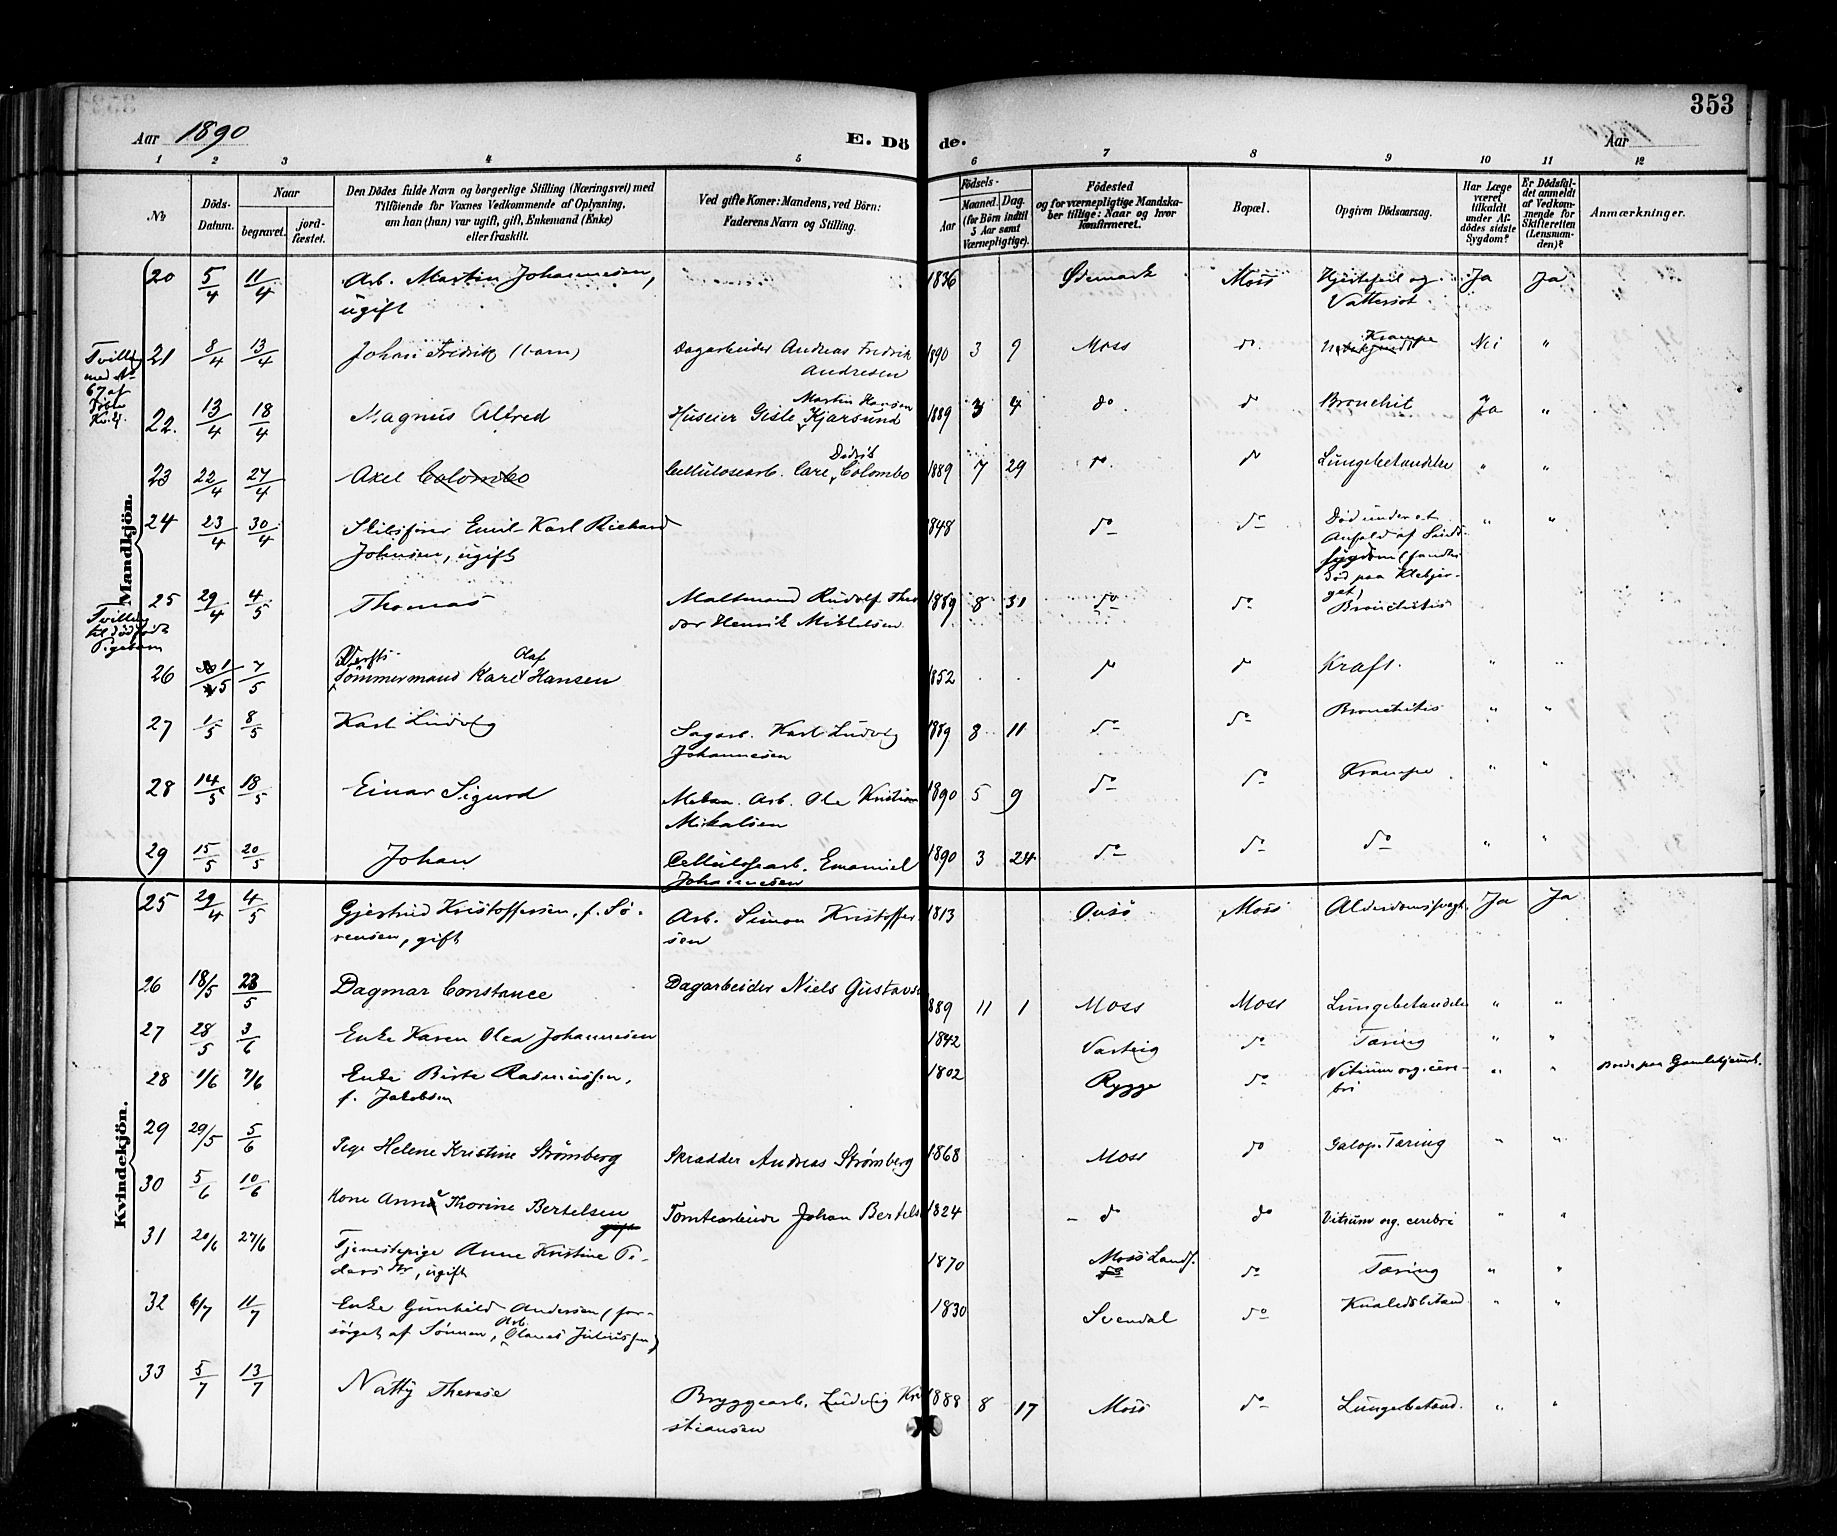 353
Aar 1890
E. Dö de.
Aar
1 2 3 4 5 6 7 8 9 10 11 12
No
Döds-Datum.
Naar
begravet. jord-fæstet.
Den Dödes fulde Navn og borgerlige Stilling (Næringsvei) med
Tilföiende for Voxnes Vedkommende af Oplysning,
om han (hun) var ugift, gift, Enkemand (Enke)
eller fraskilt.
Ved gifte Koner: Mandens, ved Börn:
Faderens Navn og Stilling.
Födsels-
Aar Maaned. Dag.
(for Börn indtil
5 Aar samt
Værnepligtige).
Födested
og for værnepligtige Mandska-
ber tillige: Naar og hvor
konfirmeret.
Bopæl.
Opgiven Dödsaarsag.
Har Læge
været
tilkaldt
under Af-
dödes sidste
Sygdom?
Er Dödsfal-
det anmeldt
af Vedkom-
mende for
Skifteretten
(Lensman-
den)?
Anmærkninger.
Mandkjön.
20 5/4 11/4 Arb. Martin Johannesen, 1836 Ødemark Moss Hjertefeil og Ja Ja
ugift Vattersot
Tvilling
med No
67 af
Kvkj.
21 8/4 13/4 Johan Fredrik (barn) Dagarbeider Andreas Fredrik 1890 3 9 Moss do. Krampe Nei "
Andresen
22. 13/4 18/4 Magnus Alfred Huseier Gisle Martin Hansen Kjærsund 1889 3 4 do. do Bronchit Ja "
23 22/4 27/4 Axel Colombo Cellulosearb. Carl Didrik Colombo 1889 7 29 do. do Lungebetændelse " "
24 23/4 30/4 Skibsfører Emil Karl Richard 1848 do do Død under et " "
Johnsen, ugift Anfald af Sinds-
sygdom (fandtes
død paa Klebjer-
get)
Tvilling
til dødfødt
Pigebarn
25 29/4 4/5 Thomas Maltmand Rudolf Theo 1889 8 31 do do Bronchitis
dor Henrik Mikkelsen
26 1/5 7/5 Verfts- Tømmermand Karl Olaf Hansen 1852 do do Kræft. " "
27 1/5 8/5 Karl Ludvig Sagarb. Karl Ludvig 1889 8 11 do do Bronchitis " "
Johannesen
28 14/5 18/5 Einar Sigurd Mekan. Arb. Ole Kristian 1890 5 9 do do Krampe " "
Mikalsen
29 15/5 20/5 Johan Cellulosearb. Emanuel 1890 3 24 do do do " "
Johannesen
Kvindekjön.
25 29/4 4/5 Gjertrud Kristoffersen, f. Sø- Arb. Simon Kristoffer 1813 Onsø Moss Alderdomssvagh. Ja Ja
rensen, gift sen
26 18/5 23/5 Dagmar Constance Dagarbeider Niels Gustavs 889 11 1 Moss Moss Lungebetændelse " "
27 28/5 3/6 Enke Karen Olea Johannesen 1842 Varteig do Tæring " "
28 1/6 7/6 Enke Birte Rasmussen, 1802 Rygge do Vitium org. cere- " " Boede paa Gamlehjemmet.
f. Jakobsen bri
29 29/5 5/6 Pige Helene Kristine Strømberg Skrædder Andreas Strømberg 1868 Moss do Galop. Tæring " "
30 5/6 10/6 Kone Anne Thorine Bertelsen Tomtearbeider Johan Bertels 1824 do do Vitium org. cerebri " "
gift
31 20/6 27/6 Tjenestepige Anne Kristine Pe- 1870 Moss Lands. do Tæring " "
dersdtr, ugift do
32 6/7 11/7 Enke Gunhild Andersen (for- 1830 Svendal do Knæledsbetænd. " "
sørget af Sønnen, Arb. Olaves Juliussen)
33 5/7 13/7 Natty Therese Bryggearb. Ludvig Kri 1888 8 17 Moss do Lungebetænd. " "
stiansen